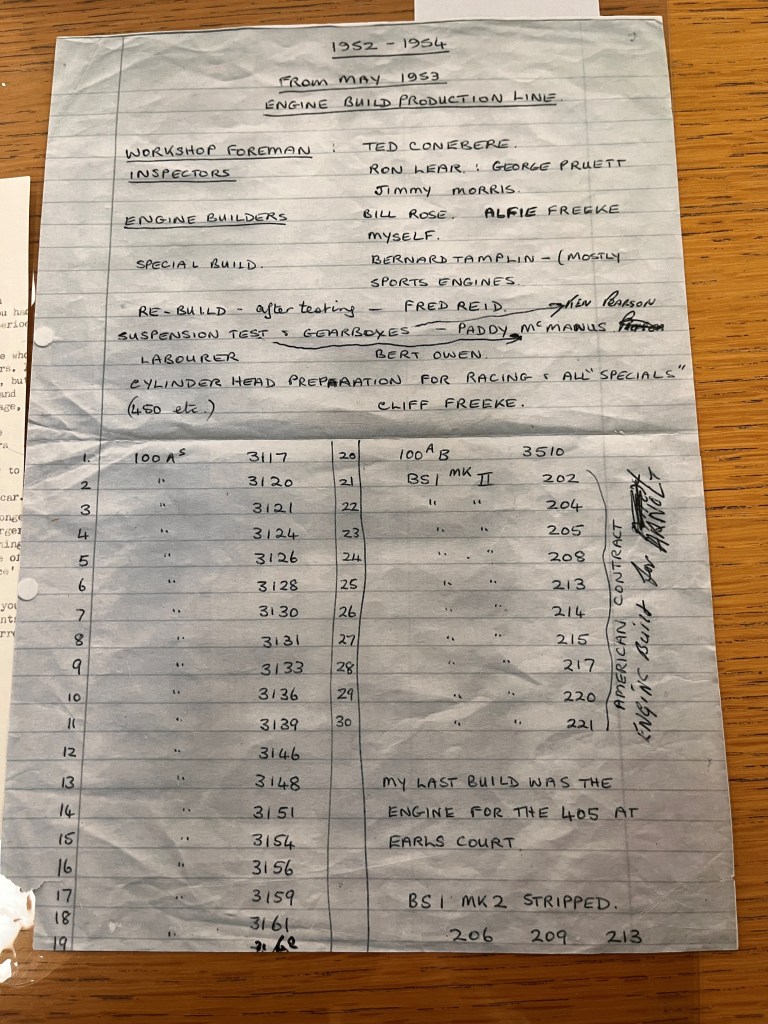 1952 - 1954
FROM MAY 1953
ENGINE BUILD PRODUCTION LINE.
WORKSHOP FOREMAN : TED CONEBERE.
INSPECTORS RON LEAR. : GEORGE PRUETT
JIMMY MORRIS.
ENGINE BUILDERS BILL ROSE. ALFIE FREEKE
MYSELF.
SPECIAL BUILD. BERNARD TAMPLIN - (MOSTLY
SPORTS ENGINES.
RE-BUILD - after testing - FRED REID. KEN PEARSON
SUSPENSION TEST & GEARBOXES - PADDY McMANUS
LABOURER BERT OWEN.
CYLINDER HEAD PREPARATION FOR RACING & ALL "SPECIALS"
(450 etc.) CLIFF FREEKE.
1. 100 AS 3117
2 " 3120
3 " 3121
4 " 3124
5 " 3126
6 " 3128
7 " 3130
8 " 3131
9 " 3133
10 " 3136
11 " 3139
12 " 3146
13 " 3148
14 " 3151
15 " 3154
16 " 3156
17 " 3159
18 3161
19 "
20 100 A B 3510
21 BS1 MK II 202
22 " " 204
23 " " 205
24 " " 208
25 " " 213
26 " " 214
27 " " 215
28 " " 217
29 " " 220
30 " " 221
AMERICAN CONTRACT
ENGINE Built for ARNOLT
MY LAST BUILD WAS THE
ENGINE FOR THE 405 AT
EARLS COURT.
BS1 MK2 STRIPPED.
206 209 213